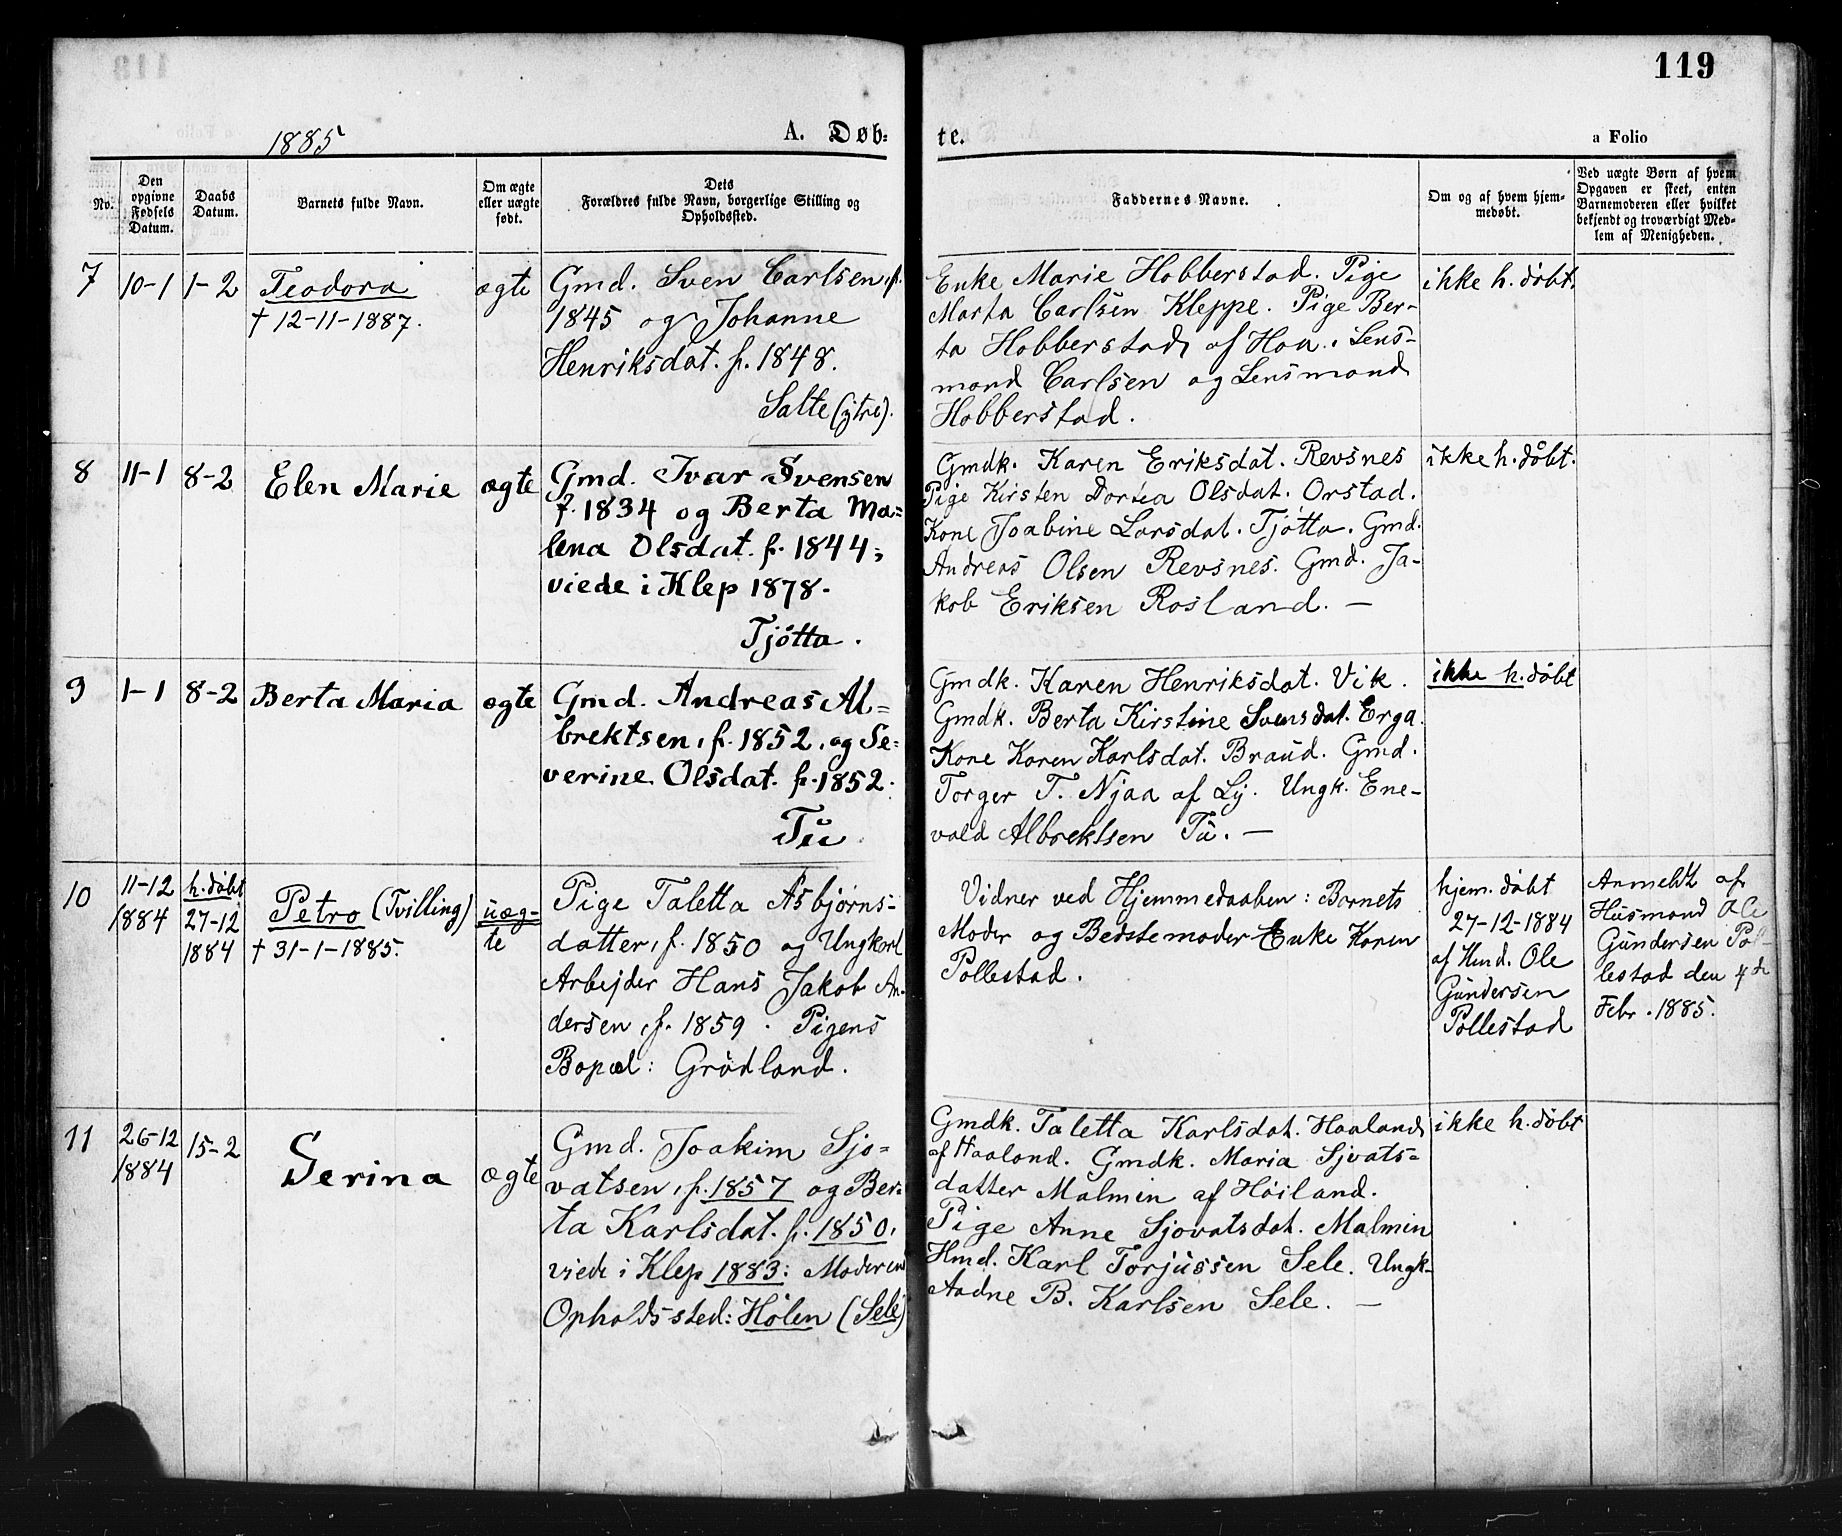 119
1885
A. Døb=
te.
a Folio
No.
Den
opgivne
Fødsels
Datum.
Daabs
Datum.
Barnets fulde Navn.
Om ægte
eller uægte
født.
Dets
Forældres fulde Navn, borgerlige Stilling og
Opholdssted.
Faddernes Navne.
Om og af hvem hjem-
medøbt.
Ved uægte Børn af hvem
Opgaven er skeet, enten
Barnemoderen eller hvilket
bekjendt og troværdigt Med-
lem af Menigheden.
7
10-1
1-2
Teodora
† 12-11-1887.
ægte
Gmd. Sven Carlsen, f.
1845 og Johanne
Henriksdat. f. 1848.
Salte (ytre).
Enke Marie Hobberstad. Pige
Marta Carlsen Kleppe. Pige Ber-
ta Hobberstad af Haa. Lens-
mand Carlsen og Lensmand
Hobberstad.
ikke h. døbt.
8
11-1
8-2
Elen Marie
ægte
Gmd. Ivar Svensen
f. 1834 og Berta Ma=
lena Olsdat. f. 1844,
viede i Klep 1878.
Tjøtta.
Gmdk. Karen Eriksdat. Revsnes
Pige Kirsten Dortea Olsdat. Orstad.
Kone Joabine Larsdat. Tjøtta. Gmd.
Andreas Olsen Revsnes. Gmd. Ja-
kob Eriksen Rosland. —
ikke h. døbt.
9
1-1
8-2
Berta Maria
ægte
Gmd. Andreas Al=
brektsen, f. 1852, og Se=
verine Olsdat. f. 1852.
Tu
Gmdk. Karen Henriksdat. Vik.
Gmdk. Berta Kirstine Svensdat. Erga
Kone Karen Karlsdat. Braud. Gmd.
Torger T. Njaa af Ly. Ungk. Ene-
vald Albrektsen Tu. —
ikke h. døbt
10
11-12
1884
h. døbt
27-12
1884
Petro (Tvilling)
† 31-1-1885.
uæg-
te
Pige Taletta Asbjørns-
datter, f. 1850 og Ungkarl
Arbejder Hans Jakob An-
dersen, f. 1859. Pigens
Bopæl: Grødland.
Vidner ved Hjemmedaaben: Barnets
Moder og Bedstemoder Enke Karen
Pollestad.
hjem. døbt
27-12-1884
af Hmd. Ole
Gundersen
Pollestad
Anmeldt af
Husmand Ole
Gundersen Pol-
lestad den 4de
Febr. 1885.
11
26-12
1884
15-2
Serina
ægte
Gmd. Joakim Sjo=
vatsen, f. 1857 og Ber-
ta Karlsdat. f. 1850,
viede i Klep 1883: Moderens
Opholds-sted: Hølen (Sele)
Gmdk. Taletta Karlsdat. Haaland
af Haaland. Gmdk. Maria Sjvats=
datter Malmin af Høiland.
Pige Anne Sjovatsdat. Malmin
Hmd. Karl Torjussen Sele. Ungk-
Aadne B. Karlsen Sele. —
ikke h. døbt